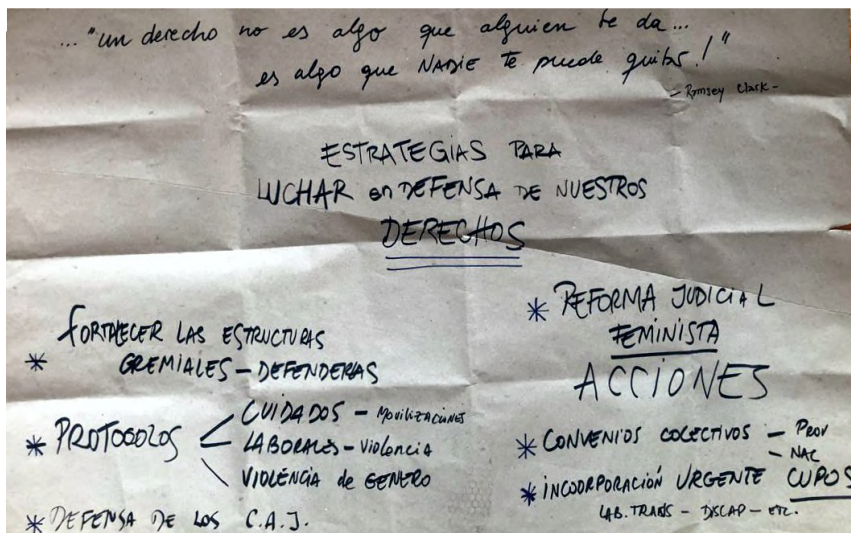 ..."un derecho no es algo que alguien te da...
es algo que NADIE te puede quitar!"
- Ramsey Clark -
ESTRATEGIAS PARA
LUCHAR en DEFENSA DE NUESTROS
DERECHOS
* FORTALECER LAS ESTRUCTURAS
GREMIALES - DEFENDERLAS
* PROTOCOLOS
CUIDADOS - MOVILIZACIONES
LABORALES - Violencia
VIOLENCIA de GENERO
* DEFENSA DE LOS C.A.J.
* REFORMA JUDICIAL
FEMINISTA
ACCIONES
* CONVENIOS COLECTIVOS - PROV
- NAC
* INCORPORACIÓN URGENTE CUPOS
LAB. TRANS - DISCAP - ETC.